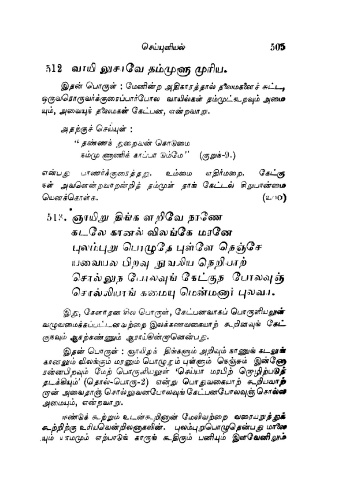 செய்யுளியல் 505
512 வாயி லுசாவே தம்முளு முரிய.
இதன் பொருள் : மேனின்ற அதிகாரத்தால் தலைமகளைச் சுட்டி,
ஒருவரொருவர்க்குரைப்பார்போல வாயில்கள் தம்முட் உறவும் அமை
யும், அவையுந் தலைமகன் கேட்பன, என்றவாறு.
அதற்குச் செய்யுள் :
“தண்ணந் துறைவன் கொடுமை
நம்மு ணாணிக் காப்பா டும்மே” (குறுந்-9.)
என்பது பாணர்க்குரைத்தது. உம்மை எதிர்மறை. கேட்கு
ந் அவனென்றவாறன்றித் தம்முள் தாங் கேட்டல் சிறுபான்மை
யெனக்கொள்க.
513. ஞாயிறு திங்க ளறிவே நாணே
கடலே கானல் விலங்கே மரனே
புலம்புறு பொழுதே புள்ளே நெஞ்சே
யவையல பிறவு நுவலிய நெறியாற்
சொல்லுந போலவுங் கேட்குந போலவுஞ்
சொல்லியாங் கமையு மென்மனார் புலவர்.
இது, கேளாதன பொருள், கேட்பனவாகப் பொருளியலுள்
வழுவமைக்கப்பட்டனவற்றை இலக்கணவகையாற் கூறினவுங் கேட்
குநவும் ஆதற்கண்ணும் ஆராய்கின்றதென்பது.
இதன் பொருள் : ஞாயிறுந் திங்களும் அறிவும் நாணுங் கடலுங்
கானலும் விலங்கும் மரனும் பொழுதும் புள்ளும் நெஞ்சும் இன்னோ
ரன்னபிறவும் மேற் பொருளியலுள் ‘செய்யா மரபிற் றொழிற்படுத்
தடக்கியும்’ (தொல்-பொரு-2) என்று பொதுவகையாற் கூறியவாற்
றான் அவைதாஞ் சொல்லுவனபோலவுங் கேட்பனபோலவுஞ்சொல்ல
அமையும், என்றவாறு.
ஈண்டுக் கூற்றும் உடன்கூறினான் மேலிவற்றை வரையறுத்துக்
கூற்றிற்கு உரியவென்றிலனாகலின். புலம்புறுபொழுதென்பது மாலை
யும் யாமமும் எற்பாடுங் காருங் கூதிரும் பனியும் இளவேனிலும்